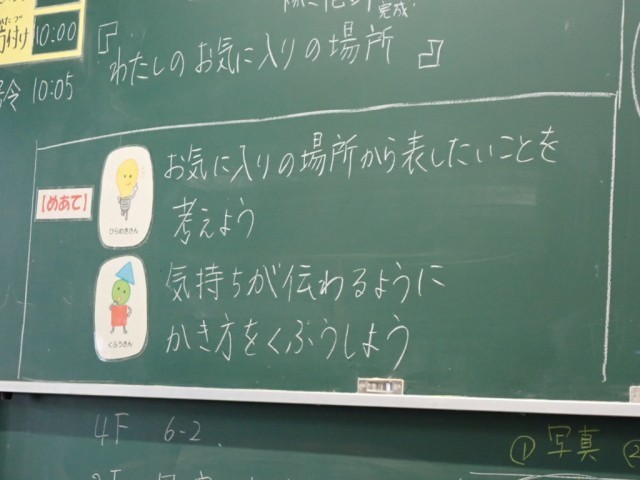 完成
付け 10:00
『わたしのお気に入りの場所』
令 10:05
【めあて】
ひらめきさん
お気に入りの場所から表したいことを
考えよう
くふうさん
気持ちが伝わるように
かき方をくふうしよう
4F 6-2
① 写真 ②